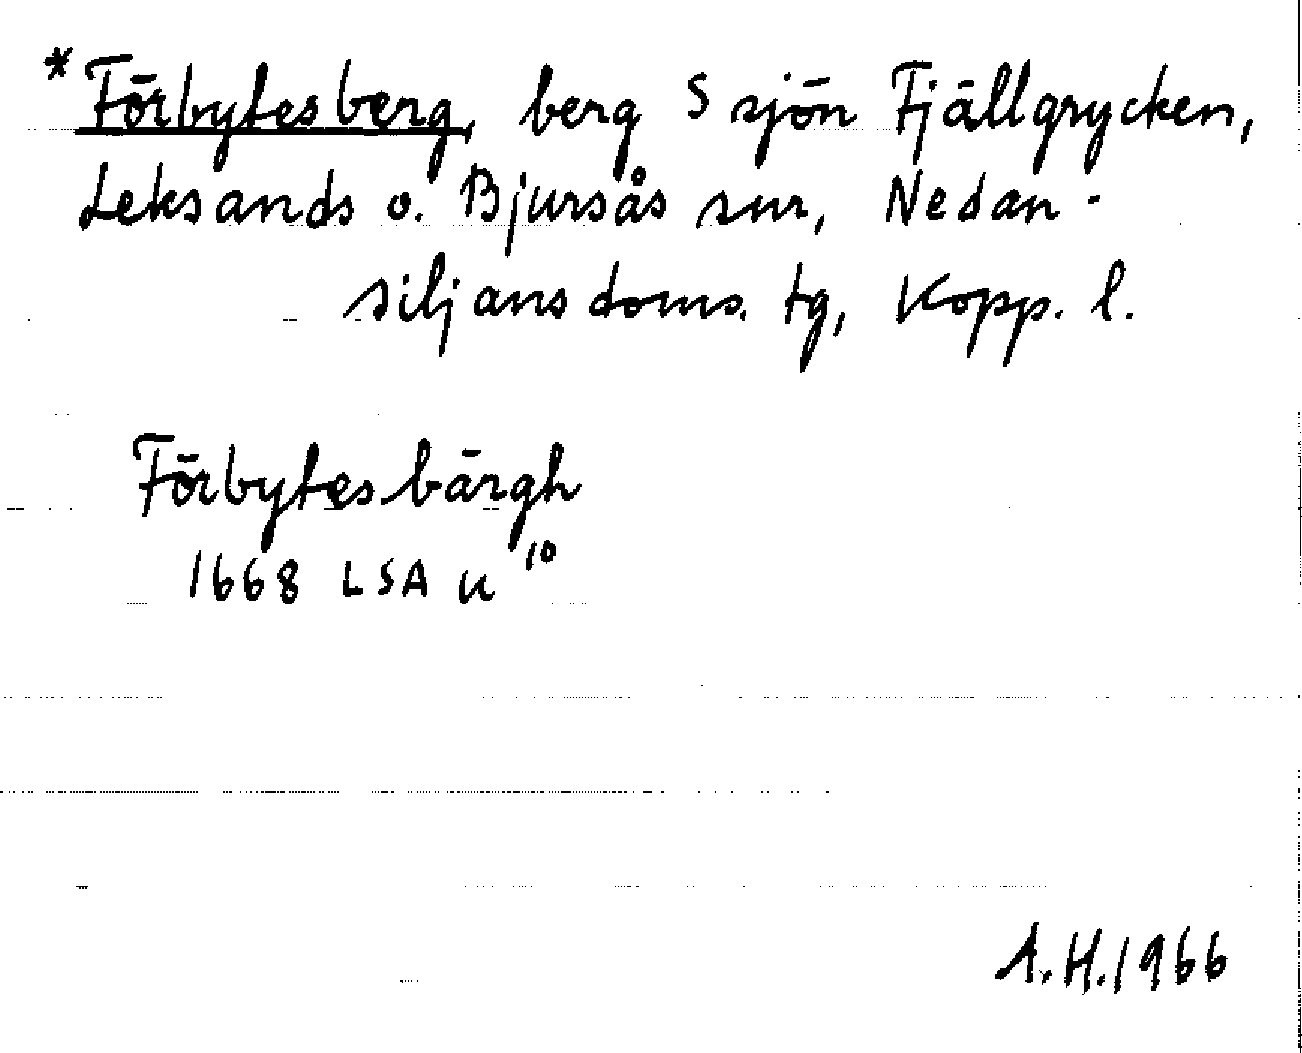 *Förbytesberg, berg S sjön Fjällgrycken,
Leksands o. Bjursås snr, Nedan-
siljans doms. tg, Kopp. l.
Förbytesbärgh
1668 LSA U 10
A.H. 1966